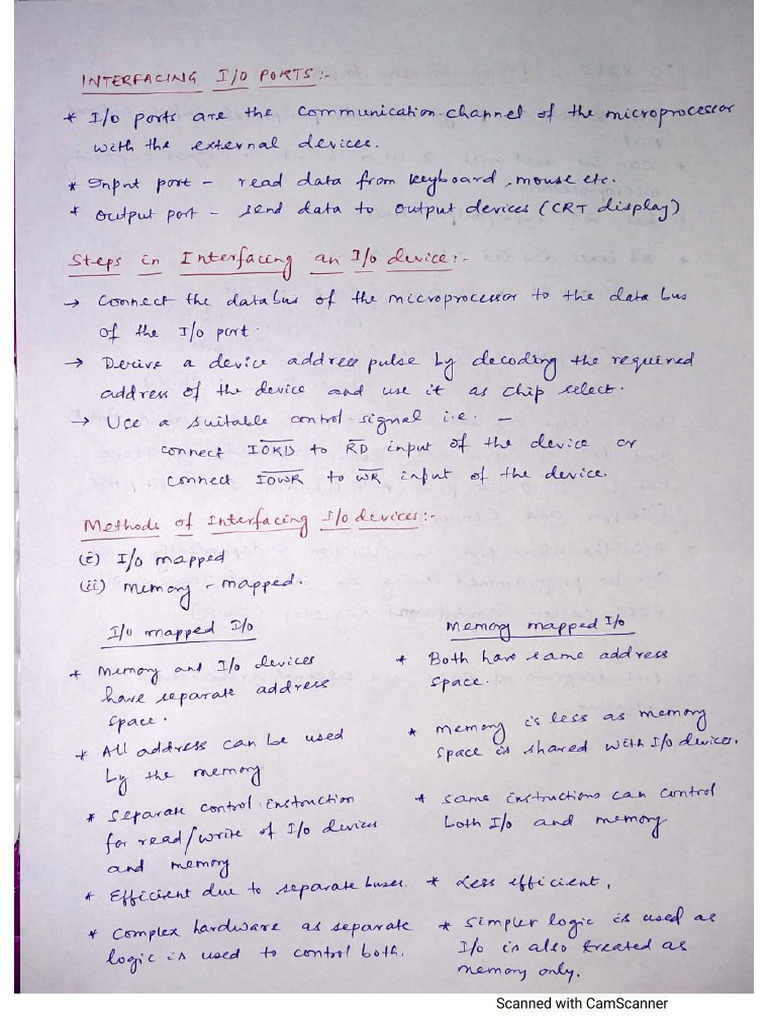 INTERFACING I/O PORTS:-
* I/O ports are the communication channel of the microprocessor
with the external devices.
* Input port - read data from keyboard, mouse etc.
* Output port - send data to output devices (CRT display)
Steps in Interfacing an I/O device:-
→ Connect the data bus of the microprocessor to the data bus
of the I/O port.
→ Derive a device address pulse by decoding the required
address of the device and use it as chip select.
→ Use a suitable control signal i.e. -
connect I̅O̅R̅D̅ to R̅D̅ input of the device or
connect I̅O̅W̅R̅ to W̅R̅ input of the device.
Methods of Interfacing I/O devices:-
(i) I/O mapped
(ii) Memory - mapped.
I/O mapped I/O
* Memory and I/O devices
have separate address
space.
* All address can be used
by the memory
* Separate control instruction
for read/write of I/O devices
and memory
* Efficient due to separate buses.
* Complex hardware as separate
logic is used to control both.
Memory mapped I/O
* Both have same address
space.
* Memory is less as memory
space is shared with I/O devices.
* Same instructions can control
both I/O and memory
* Less efficient.
* Simpler logic is used as
I/O is also treated as
memory only.
Scanned with CamScanner